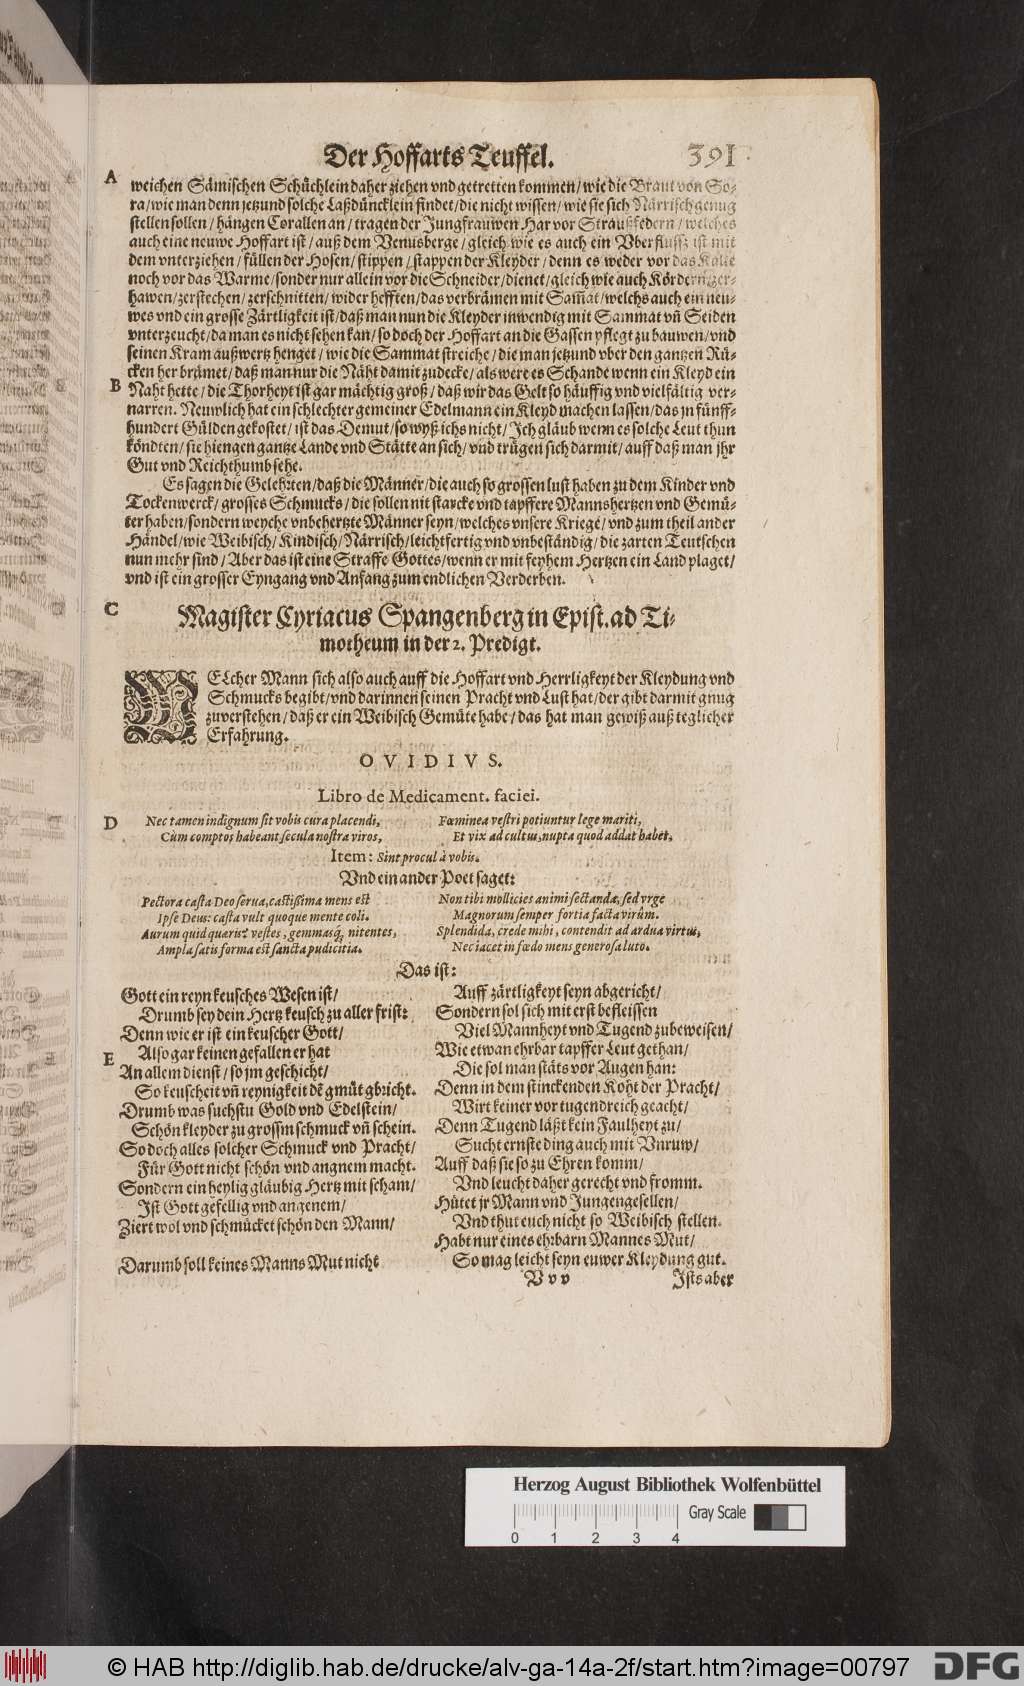 Der Hoffarts Teuffel. 391
A
weichen Sämischen Schüchlein daher ziehen vnd getretten kommen/ wie die Braut von So-
ra/ wie man denn jetzund solche Laßdüncklein findet/ die nicht wissen/ wie sie sich Närrisch genug
stellen sollen/ hängen Corallen an/ tragen der Jungfrauwen Har vor Straußfedern/ welches
auch eine neuwe Hoffart ist/ auß dem Venusberge/ gleich wie es auch ein Vberfluß ist mit
dem vnterziehen/ füllen der Hosen/ stippen/ stappen der Kleyder/ denn es weder vor das Kalte
noch vor das Warme/ sonder nur allein vor die Schneider/ dienet/ gleich wie auch Kördern/ zer-
hawen/ zerstechen/ zerschnitten/ wider hefften/ das verbrämen mit Sam̃at/ welchs auch ein neu-
wes vnd ein grosse Zärtligkeit ist/ daß man nun die Kleyder inwendig mit Sammat vñ Seiden
vnterzeucht/ da man es nicht sehen kan/ so doch der Hoffart an die Gassen pflegt zu bauwen/ vnd
seinen Kram außwertz henget/ wie die Sammat streiche/ die man jetzund vber den gantzen Rü-
cken her brämet/ daß man nur die Näht damit zudecke/ als were es Schande wenn ein Kleyd ein
B
Naht hette/ die Thorheyt ist gar mächtig groß/ daß wir das Gelt so häuffig vnd vielfältig ver-
narren. Neuwlich hat ein schlechter gemeiner Edelmann ein Kleyd machen lassen/ das jn fünff-
hundert Gülden gekostet/ ist das Demut/ so wyß ichs nicht/ Ich gläub wenn es solche Leut thun
köndten/ sie hiengen gantze Lande vnd Stätte an sich/ vnd trügen sich darmit/ auff daß man jhr
Gut vnd Reichthumb sehe.
Es sagen die Gelehrten/ daß die Männer/ die auch so grossen lust haben zu dem Kinder vnd
Tockenwerck/ grosses Schmucks/ die sollen nit starcke vnd tapffere Mannshertzen vnd Gemü-
ter haben/ sondern weyche vnbehertzte Männer seyn/ welches vnsere Kriege/ vnd zum theil ander
Händel/ wie Weibisch/ Kindisch/ Närrisch/ leichtfertig vnd vnbeständig/ die zarten Teutschen
nun mehr sind/ Aber das ist eine Straffe Gottes/ wenn er mit feyhem Hertzen ein Land plaget/
vnd ist ein grosser Eyngang vnd Anfang zum endlichen Verderben.
C
Magister Cyriacus Spangenberg in Epist. ad Ti-
motheum in der 2. Predigt.
WELcher Mann sich also auch auff die Hoffart vnd Herrligkeyt der Kleydung vnd
Schmucks begibt/ vnd darinnen seinen Pracht vnd Lust hat/ der gibt darmit gnug
zuverstehen/ daß er ein Weibisch Gemüte habe/ das hat man gewiß auß teglicher
Erfahrung.
OVIDIVS.
Libro de Medicament. faciei.
D
Nec tamen indignum sit vobis cura placendi,
Cùm comptos habeant secula nostra viros,
Fœminea vestri potiuntur lege mariti,
Et vix ad cultus, nupta quod addat habet.
Item: Sint procul à vobis.
Vnd ein ander Poet saget:
Pectora casta Deo serua, castißima mens est
Ipse Deus: casta vult quoque mente coli.
Aurum quid quaeris? vestes, gemmasq́, nitentes,
Ampla satis forma est sancta pudicitia.
Non tibi mollicies animi sectanda, sed vrge
Magnorum semper fortia facta virûm.
Splendida, crede mihi, contendit ad ardua virtus,
Nec iacet in fœdo mens generosa luto.
Das ist:
Gott ein reyn keusches Wesen ist/
Drumb sey dein Hertz keusch zu aller frist:
Denn wie er ist ein keuscher Gott/
E
Also gar keinen gefallen er hat
An allem dienst/ so jm geschicht/
So keuscheit vñ reynigkeit dẽ gmüt gbricht.
Drumb was suchstu Gold vnd Edelstein/
Schön kleyder zu grossm schmuck vñ schein.
So doch alles solcher Schmuck vnd Pracht/
Für Gott nicht schön vnd angnem macht.
Sondern ein heylig gläubig Hertz mit scham/
Ist Gott gefellig vnd angenem/
Ziert wol vnd schmücket schön den Mann/
Darumb soll keines Manns Mut nicht
Auff zärtligkeyt seyn abgericht/
Sondern sol sich mit erst befleissen
Viel Mannheyt vnd Tugend zubeweisen/
Wie etwan ehrbar tapffer Leut gethan/
Die sol man stäts vor Augen han:
Denn in dem stinckenden Koht der Pracht/
Wirt keiner vor tugendreich geacht/
Denn Tugend läßt kein Faulheyt zu/
Sucht ernste ding auch mit Vnruw/
Auff daß sie so zu Ehren komm/
Vnd leucht daher gerecht vnd fromm.
Hütet jr Mann vnd Jungengesellen/
Vnd thut euch nicht so Weibisch stellen.
Habt nur eines ehrbarn Mannes Mut/
So mag leicht seyn euwer Kleydung gut.
Vvv Ists aber
Herzog August Bibliothek Wolfenbüttel
0 1 2 3 4 Gray Scale
© HAB http://diglib.hab.de/drucke/alv-ga-14a-2f/start.htm?image=00797 DFG